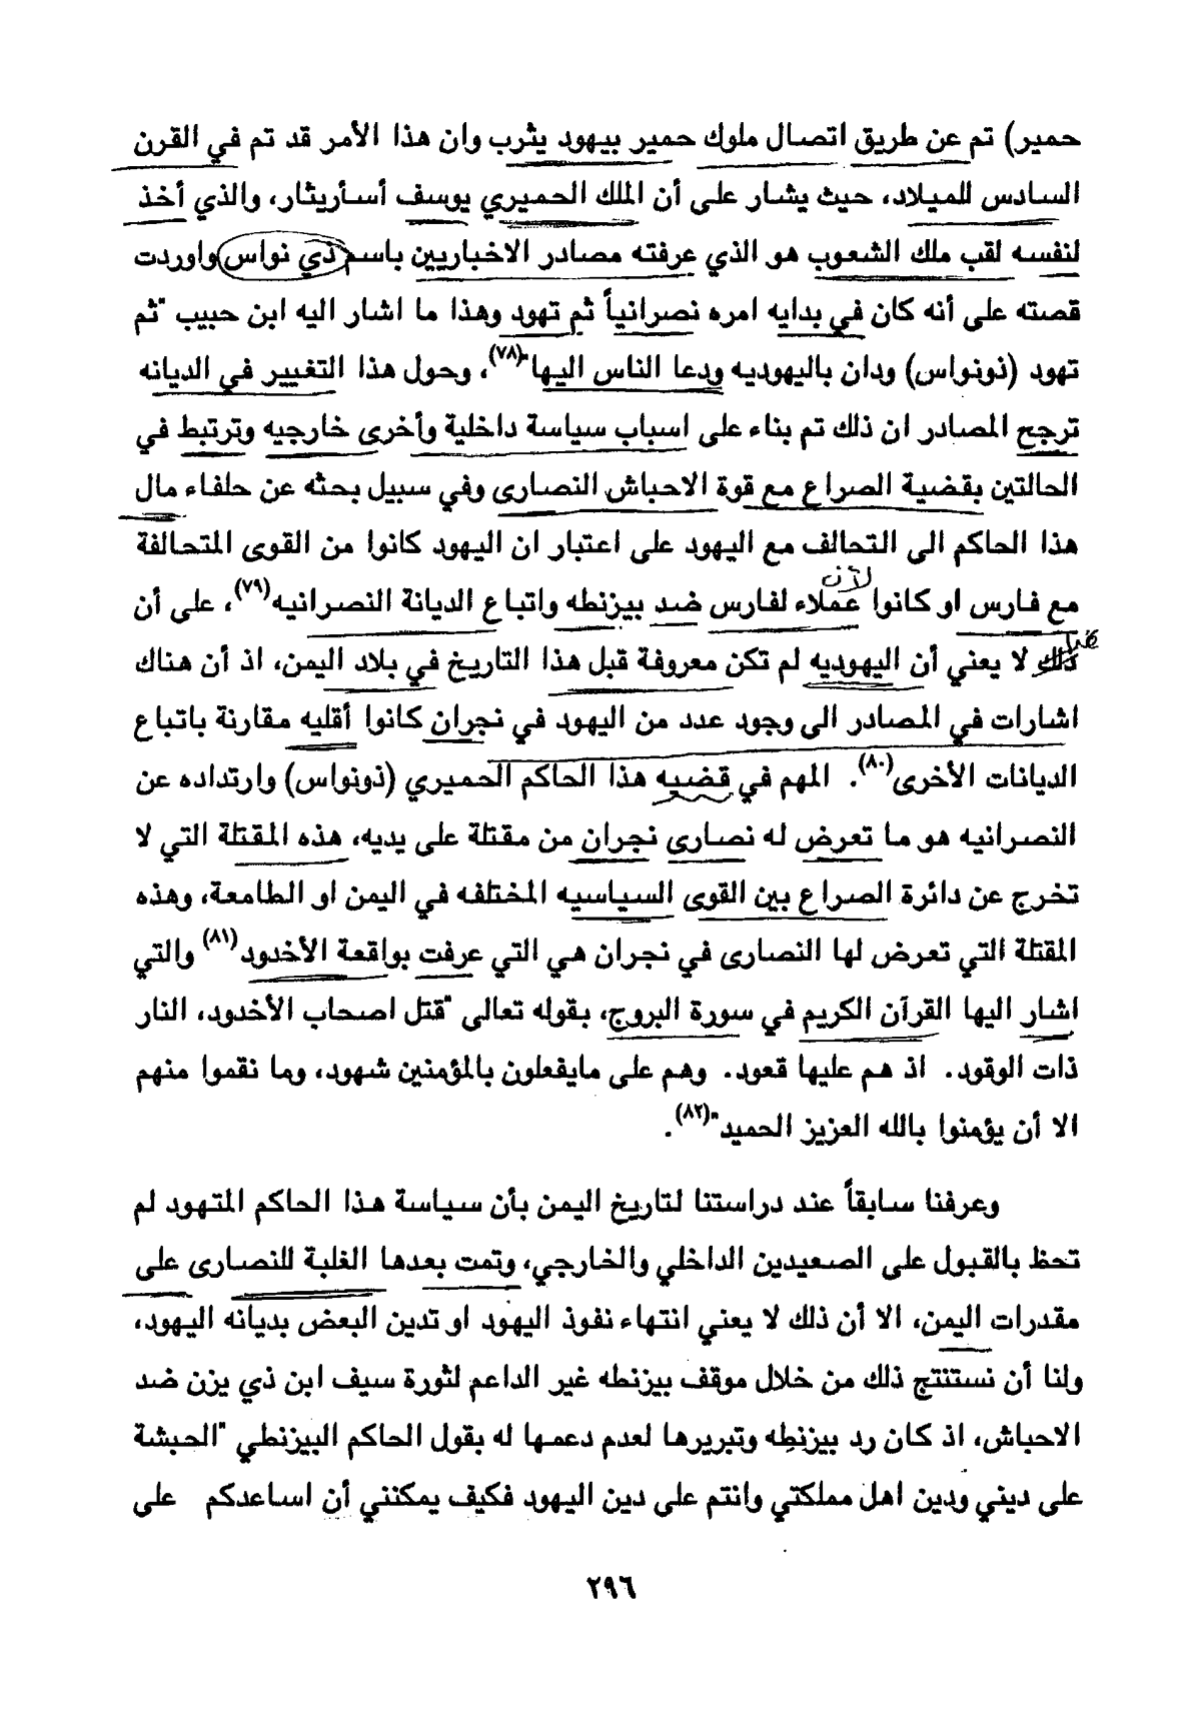 حمير) تم عن طريق اتصال ملوك حمير بيهود يثرب وان هذا الأمر قد تم في القرن
السادس للميلاد، حيث يشار على أن الملك الحميري يوسف أسأريثار، والذي أخذ
لنفسه لقب ملك الشعوب هو الذي عرفته مصادر الاخباريين باسم ذي نواس واوردت
قصته على أنه كان في بدايه امره نصرانياً ثم تهود وهذا ما اشار اليه ابن حبيب "ثم
تهود (ذونواس) ودان باليهوديه ودعا الناس اليها"(٧٨)، وحول هذا التغيير في الديانه
ترجح المصادر ان ذلك تم بناء على اسباب سياسة داخلية وأخرى خارجيه وترتبط في
الحالتين بقضية الصراع مع قوة الاحباش النصارى وفي سبيل بحثه عن حلفاء مال
هذا الحاكم الى التحالف مع اليهود على اعتبار ان اليهود كانوا من القوى المتحالفة
مع فارس او كانوا عملاء لفارس ضد بيزنطه واتباع الديانة النصرانيه(٧٩)، على أن
ذلك لا يعني أن اليهوديه لم تكن معروفة قبل هذا التاريخ في بلاد اليمن، اذ أن هناك
اشارات في المصادر الى وجود عدد من اليهود في نجران كانوا أقليه مقارنة باتباع
الديانات الأخرى(٨٠). المهم في قضيه هذا الحاكم الحميري (ذونواس) وارتداده عن
النصرانيه هو ما تعرض له نصارى نجران من مقتلة على يديه، هذه المقتلة التي لا
تخرج عن دائرة الصراع بين القوى السياسيه المختلفه في اليمن او الطامعة، وهذه
المقتلة التي تعرض لها النصارى في نجران هي التي عرفت بواقعة الأخدود(٨١) والتي
اشار اليها القرآن الكريم في سورة البروج، بقوله تعالى "قتل اصحاب الأخدود، النار
ذات الوقود. اذ هم عليها قعود. وهم على مايفعلون بالمؤمنين شهود، وما نقموا منهم
الا أن يؤمنوا بالله العزيز الحميد"(٨٢).
وعرفنا سابقاً عند دراستنا لتاريخ اليمن بأن سياسة هذا الحاكم المتهود لم
تحظ بالقبول على الصعيدين الداخلي والخارجي، وتمت بعدها الغلبة للنصارى على
مقدرات اليمن، الا أن ذلك لا يعني انتهاء نفوذ اليهود او تدين البعض بديانه اليهود،
ولنا أن نستنتج ذلك من خلال موقف بيزنطه غير الداعم لثورة سيف ابن ذي يزن ضد
الاحباش، اذ كان رد بيزنطه وتبريرها لعدم دعمها له بقول الحاكم البيزنطي "الحبشة
على ديني ودين اهل مملكتي وانتم على دين اليهود فكيف يمكنني أن اساعدكم على
٢٩٦